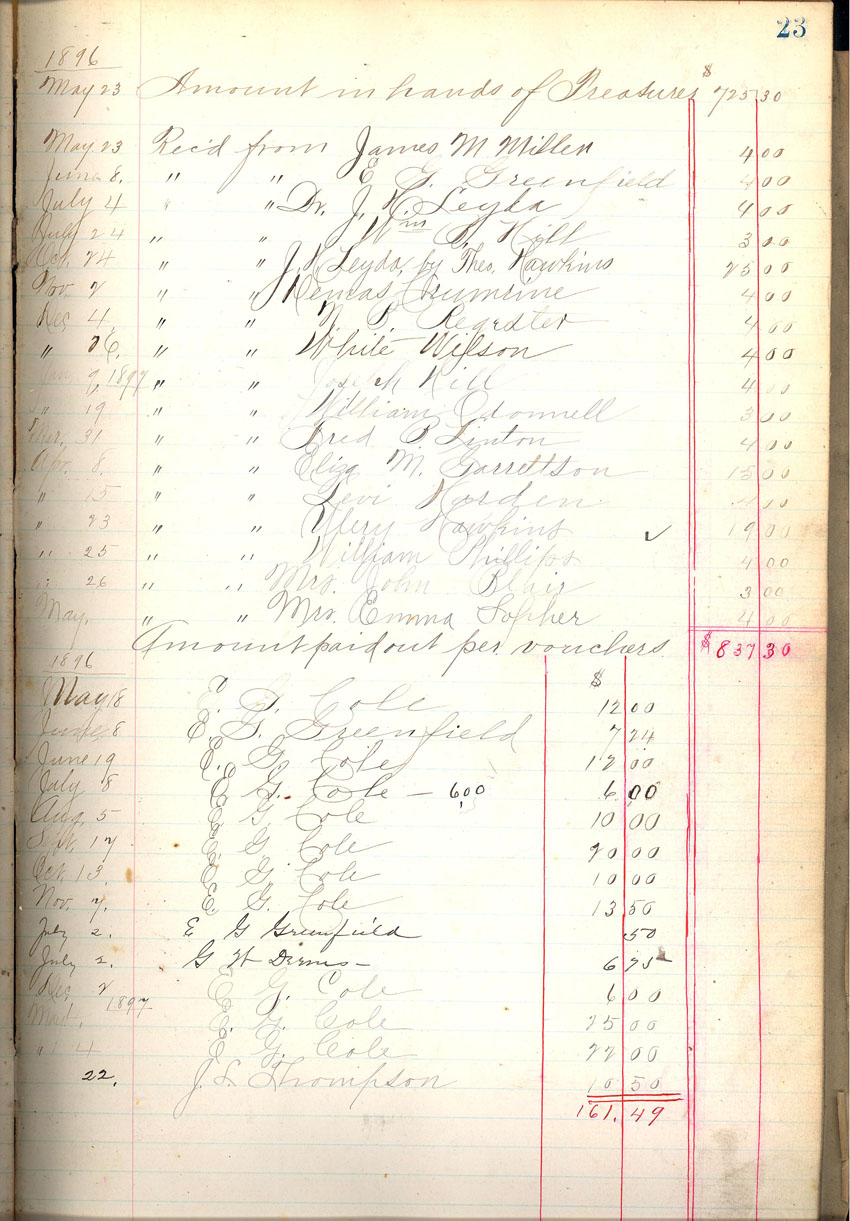 23
1896
May 23 Amount in hands of Treasurer $ 725 30
May 23 Rec'd from James M Miller 4 00
June 8. " " E G. Greenfield 4 00
July 4 " " Dr. J. H. Leyda 4 00
July 24 " " Wm Hill 3 00
Oct. 24 " " J H Leyda, by Theo. Hawkins 25 00
Nov. 2 " " Crumrine 4 00
Dec 4, " " 4 00
" 26. " " White Wilson 4 00
Jan 9, 1897 " " Joseph Hill 4 00
" 19 " " William Odonnell 3 00
Mar. 31 " " Fred P. Linton 4 00
Apr. 8. " " Eliza M. Garrettson 15 00
" 15 " " Levi Harden 4 00
" 23 " " Ulery Hawkins ✓ 19 00
" 25 " " William Phillips 4 00
" 26 " " Mrs. John Blair 3 00
May. " " Mrs. Emma Sopher 4 00
Amount paid out per vouchers $ 837 30
1896 $
May 18 E. G. Cole 12 00
June 8 E. G. Greenfield 7 24
June 19 E. G. Cole 12 00
July 8 E G. Cole — 6.00 6 00
Aug. 5 E G. Cole 10 00
Sept. 17 E G. Cole 20 00
Oct. 13 E G. Cole 10 00
Nov. 7. E. G. Cole 13 50
July 2. E G Greenfield 50
July 2. G W 6 75
Dec 2 E G. Cole 6 00
1897 E. G. Cole 25 00
" 4 E G. Cole 22 00
22. J. L. Thompson 10 50
161. 49